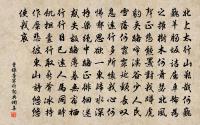 北上太行山艱哉何巍巍
羊腸坂詰屈車輪為
之摧樹木何蕭瑟北風
聲正悲熊羆對我蹲
虎豹夾路啼谿谷少人民
雪落何霏霏延頸長歎
息遠行多所懷我心何
怫鬱思欲一東歸水深
橋梁絕中路正徘徊迷
惑失故路薄暮無宿棲
行行日已遠人馬同時
飢擔囊行取薪斧冰持
作糜悲彼東山詩悠悠
使我哀